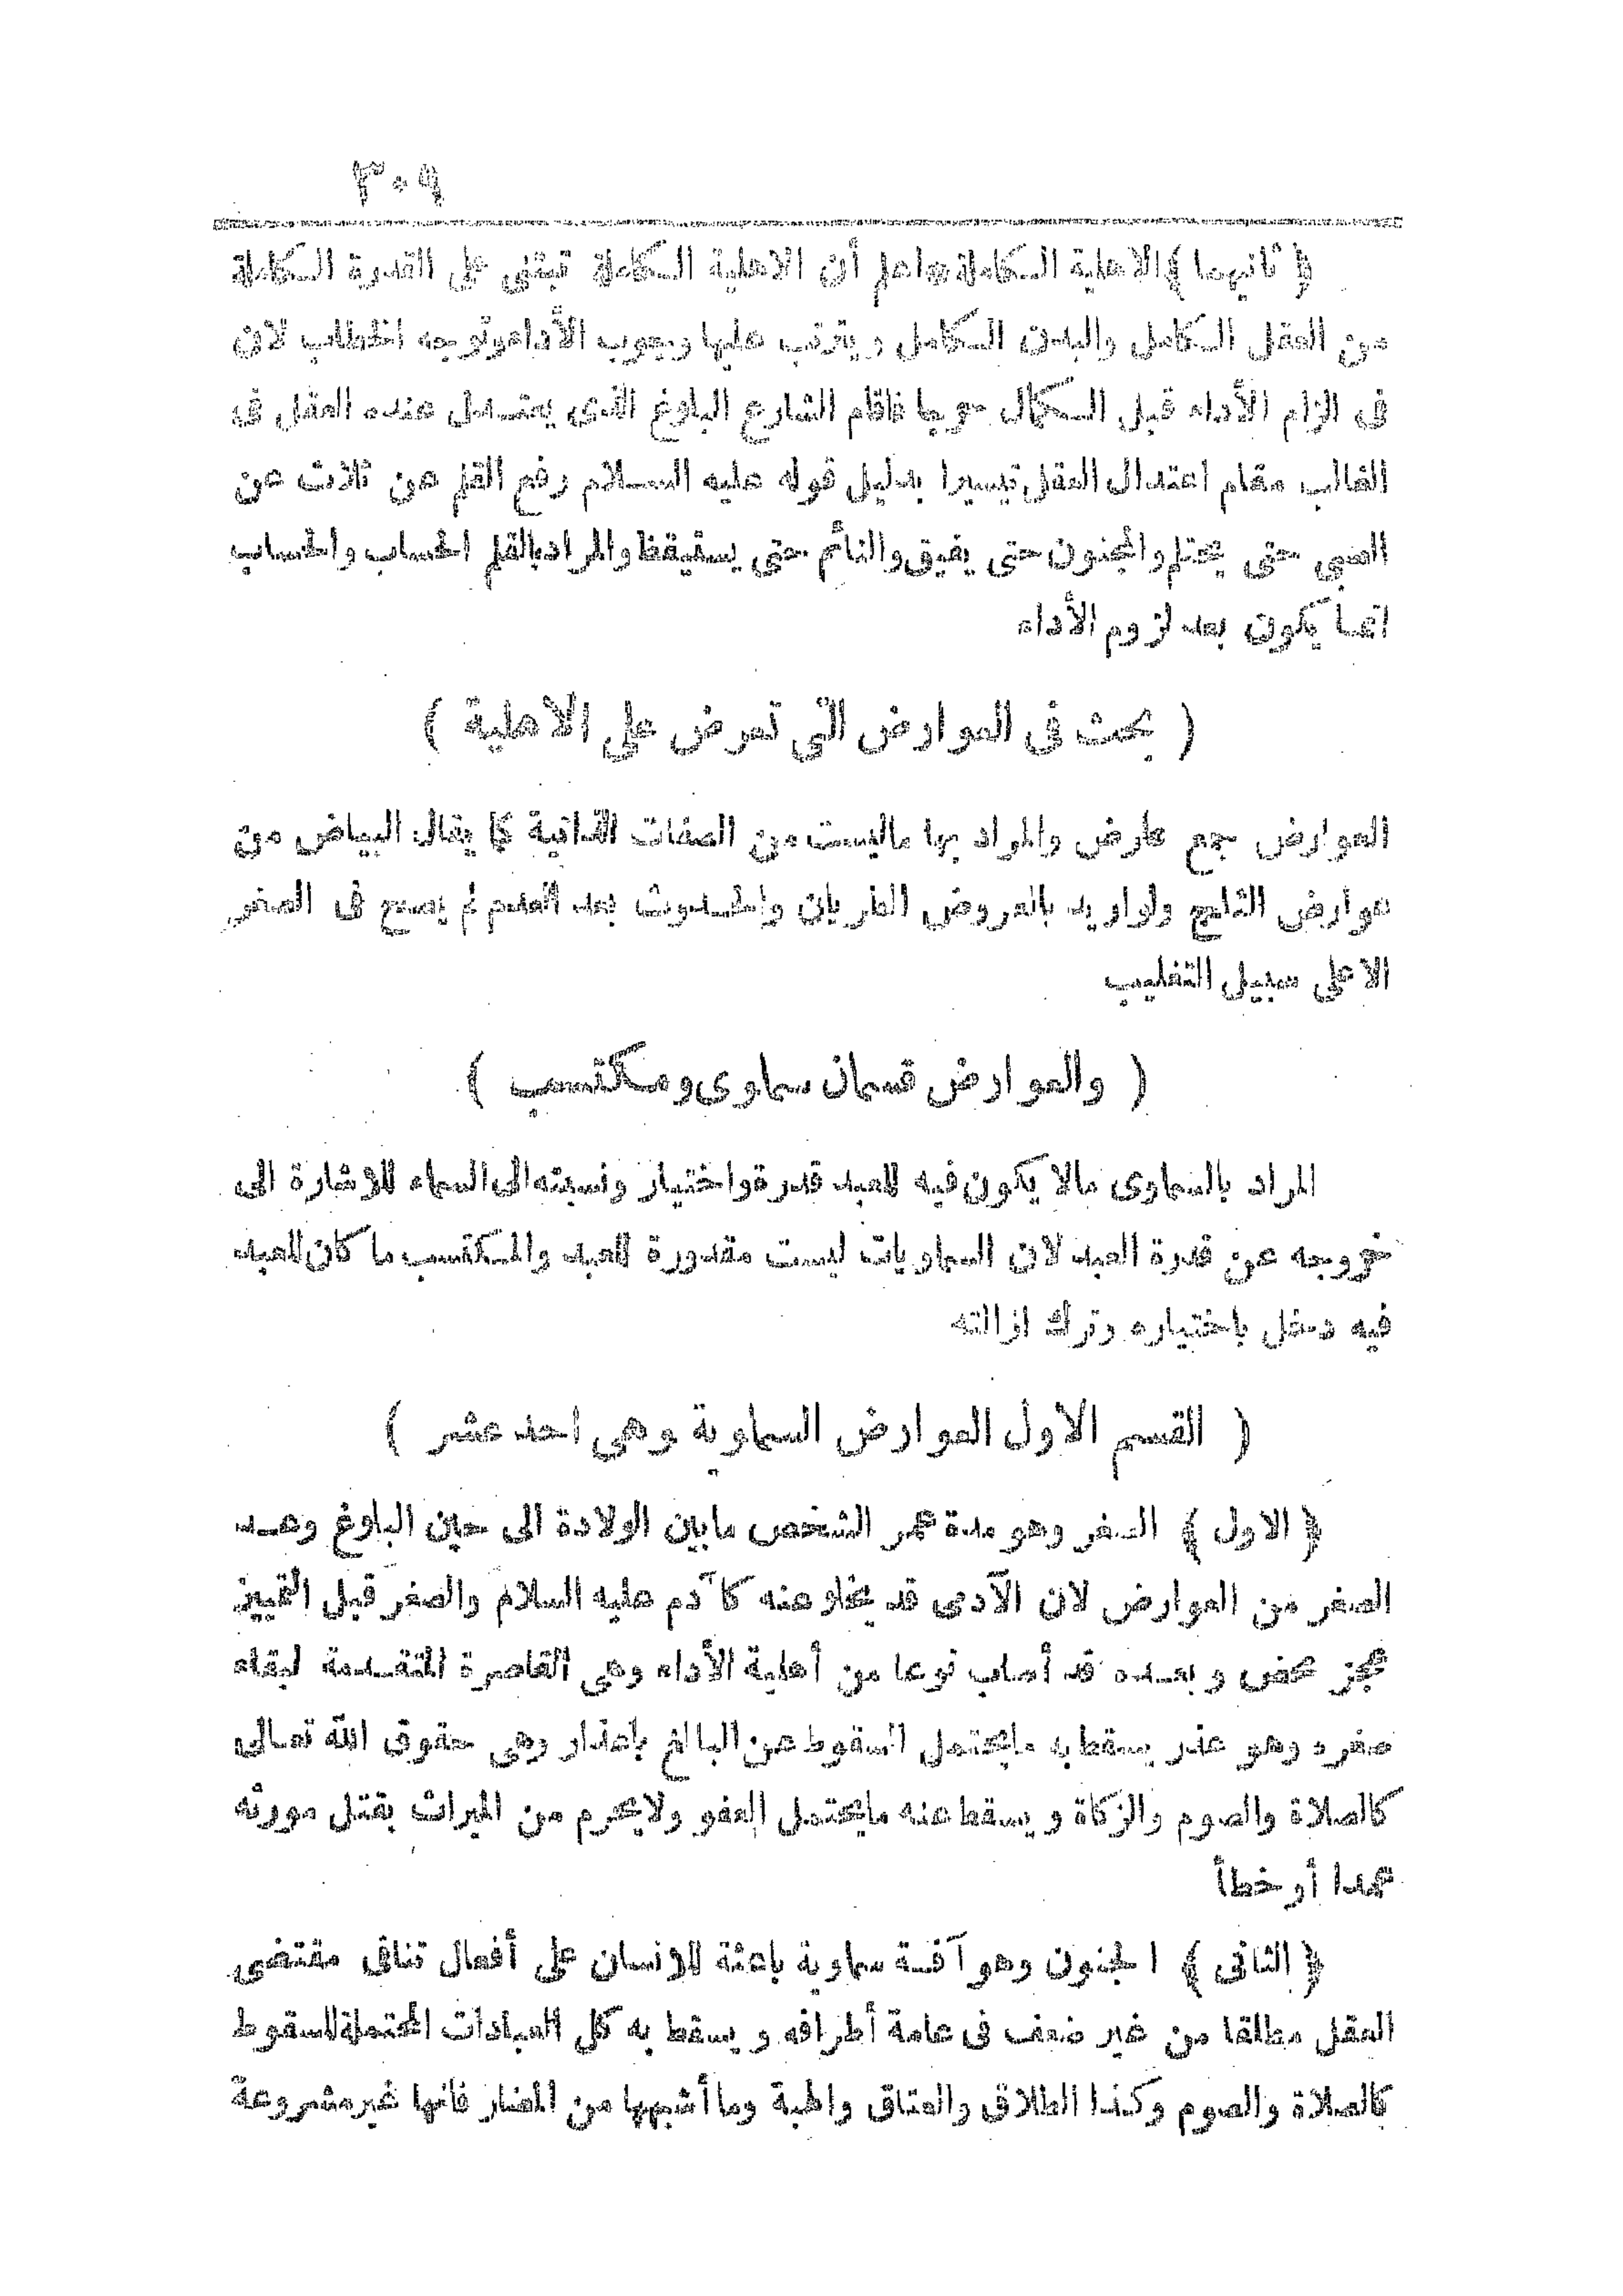 ٣٠٩
﴿ ثانيهما ﴾ الاهلية الكاملة * اعلم أن الاهلية الكاملة تبتنى على القدرة الكاملة
من العقل الكامل والبدن الكامل ويترتب عليها وجوب الأداء وتوجه الخطاب لان
فى الزام الأداء قبل الكمال حرجا فاقام الشارع البلوغ الذى يعتدل عنده العقل فى
الغالب مقام اعتدال العقل تيسيرا بدليل قوله عليه السلام رفع القلم عن ثلاث عن
الصبي حتى يحتلم والمجنون حتى يفيق والنائم حتى يستيقظ والمراد بالقلم الحساب والحساب
انما يكون بعد لزوم الأداء
( بحث فى العوارض التى تعرض على الاهلية )
العوارض جمع عارض والمراد بها ماليست من الصفات الذاتية كما يقال البياض من
عوارض الثلج ولو اريد بالعروض الطريان والحدوث بعد العدم لم يصح فى الصغر
الا على سبيل التغليب
( والعوارض قسمان سماوى ومكتسب )
المراد بالسماوى مالا يكون فيه للعبد قدرة واختيار ونسبته الى السماء للاشارة الى
خروجه عن قدرة العبد لان السماويات ليست مقدورة للعبد والمكتسب ما كان للعبد
فيه دخل باختياره وترك ازالته
( القسم الاول العوارض السماوية وهى احد عشر )
﴿ الاول ﴾ الصغر وهو مدة عمر الشخص مابين الولادة الى حين البلوغ وعد
الصغر من العوارض لان الآدمى قد يخلو عنه كآدم عليه السلام والصغر قبل التمييز
عجز محض وبعده قد أصاب نوعا من أهلية الأداء وهى القاصرة المتقدمة لبقاء
صغره وهو عذر يسقط به مايحتمل السقوط عن البالغ باعذار وهى حقوق الله تعالى
كالصلاة والصوم والزكاة ويسقط عنه مايحتمل العفو ولا يحرم من الميراث بقتل مورثه
عمدا أو خطأ
﴿ الثانى ﴾ الجنون وهو آفة سماوية باعثة للانسان على أفعال تنافى مقتضى
العقل مطلقا من غير ضعف فى عامة أطرافه ويسقط به كل العبادات المحتملة للسقوط
كالصلاة والصوم وكذا الطلاق والعتاق والهبة وما أشبهها من المضار فانها غير مشروعة